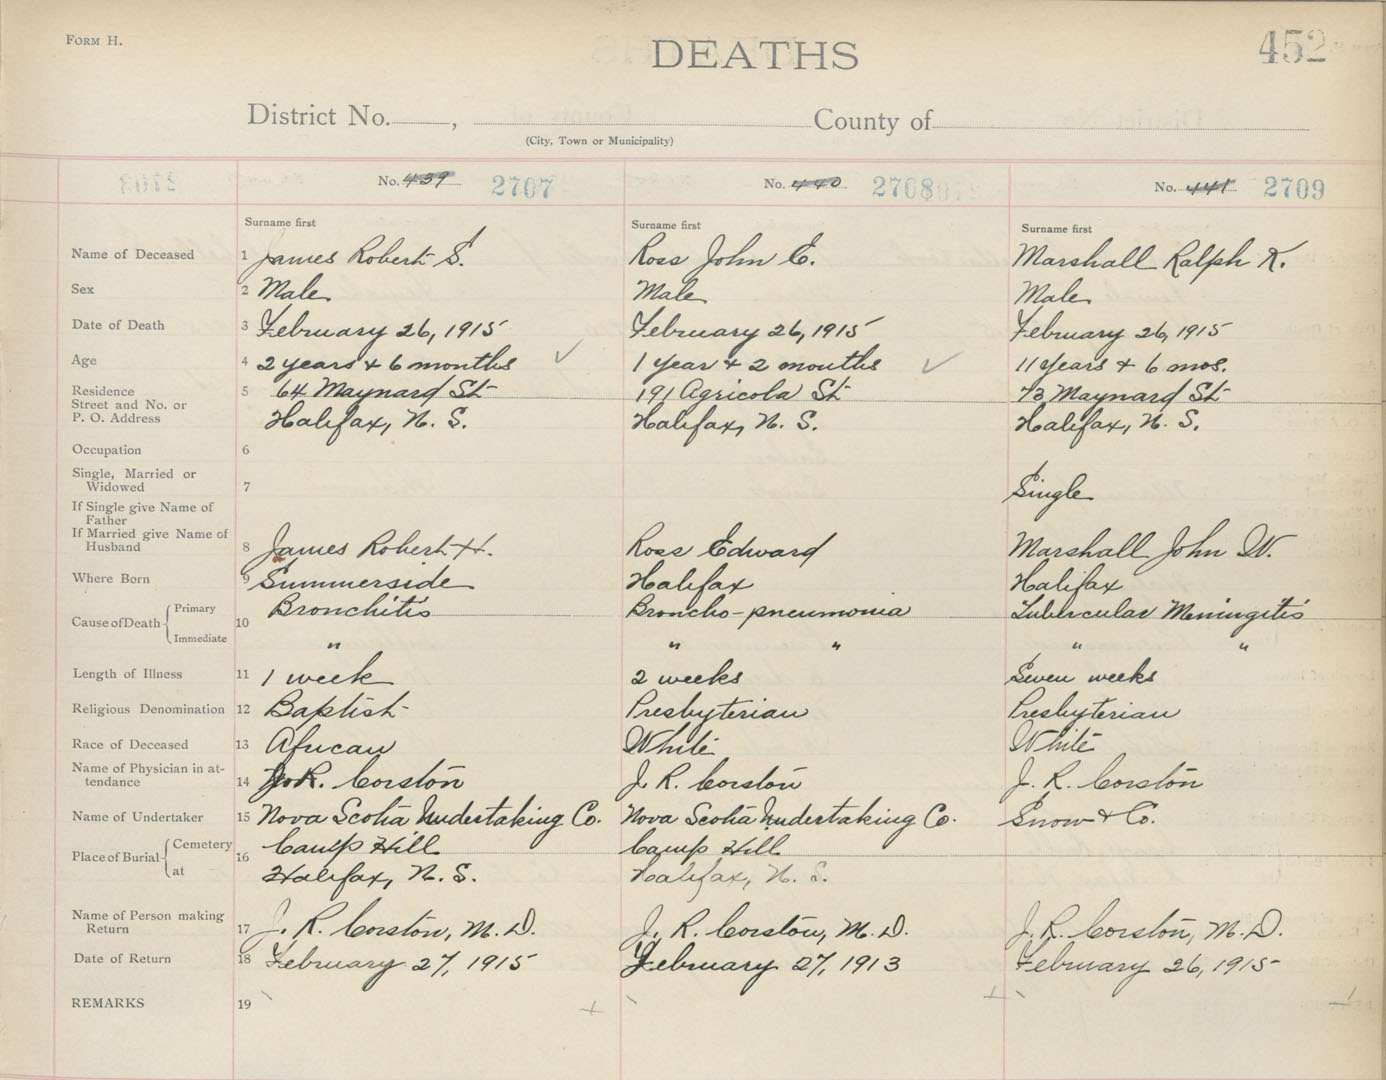 FORM H.
DEATHS
452
District No. , County of
(City, Town or Municipality)
No. 439 2707
No. 440 2708
No. 441 2709
Surname first
Surname first
Surname first
Name of Deceased 1 James Robert S. Ross John E. Marshall Ralph K.
Sex 2 Male Male Male
Date of Death 3 February 26, 1915 February 26, 1915 February 26, 1915
Age 4 2 years + 6 months ✓ 1 year + 2 months ✓ 11 years + 6 mos.
Residence 5 64 Maynard St 191 Agricola St 73 Maynard St
Street and No. or
P. O. Address Halifax, N. S. Halifax, N. S. Halifax, N. S.
Occupation 6
Single, Married or
Widowed 7 Single
If Single give Name of
Father
If Married give Name of
Husband 8 James Robert H. Ross Edward Marshall John W.
Where Born 9 Summerside Halifax Halifax
Cause of Death Primary 10 Bronchitis Broncho-pneumonia Tubercular Meningitis
Immediate " " " " "
Length of Illness 11 1 week 2 weeks Seven weeks
Religious Denomination 12 Baptist Presbyterian Presbyterian
Race of Deceased 13 African White White
Name of Physician in at-
tendance 14 J. R. Corston J. R. Corston J. R. Corston
Name of Undertaker 15 Nova Scotia Undertaking Co. Nova Scotia Undertaking Co. Snow & Co.
Place of Burial Cemetery 16 Camp Hill Camp Hill
at Halifax, N. S. Halifax, N. S.
Name of Person making
Return 17 J. R. Corston, M. D. J. R. Corston, M. D. J. R. Corston, M. D.
Date of Return 18 February 27, 1915 February 27, 1913 February 26, 1915
REMARKS 19